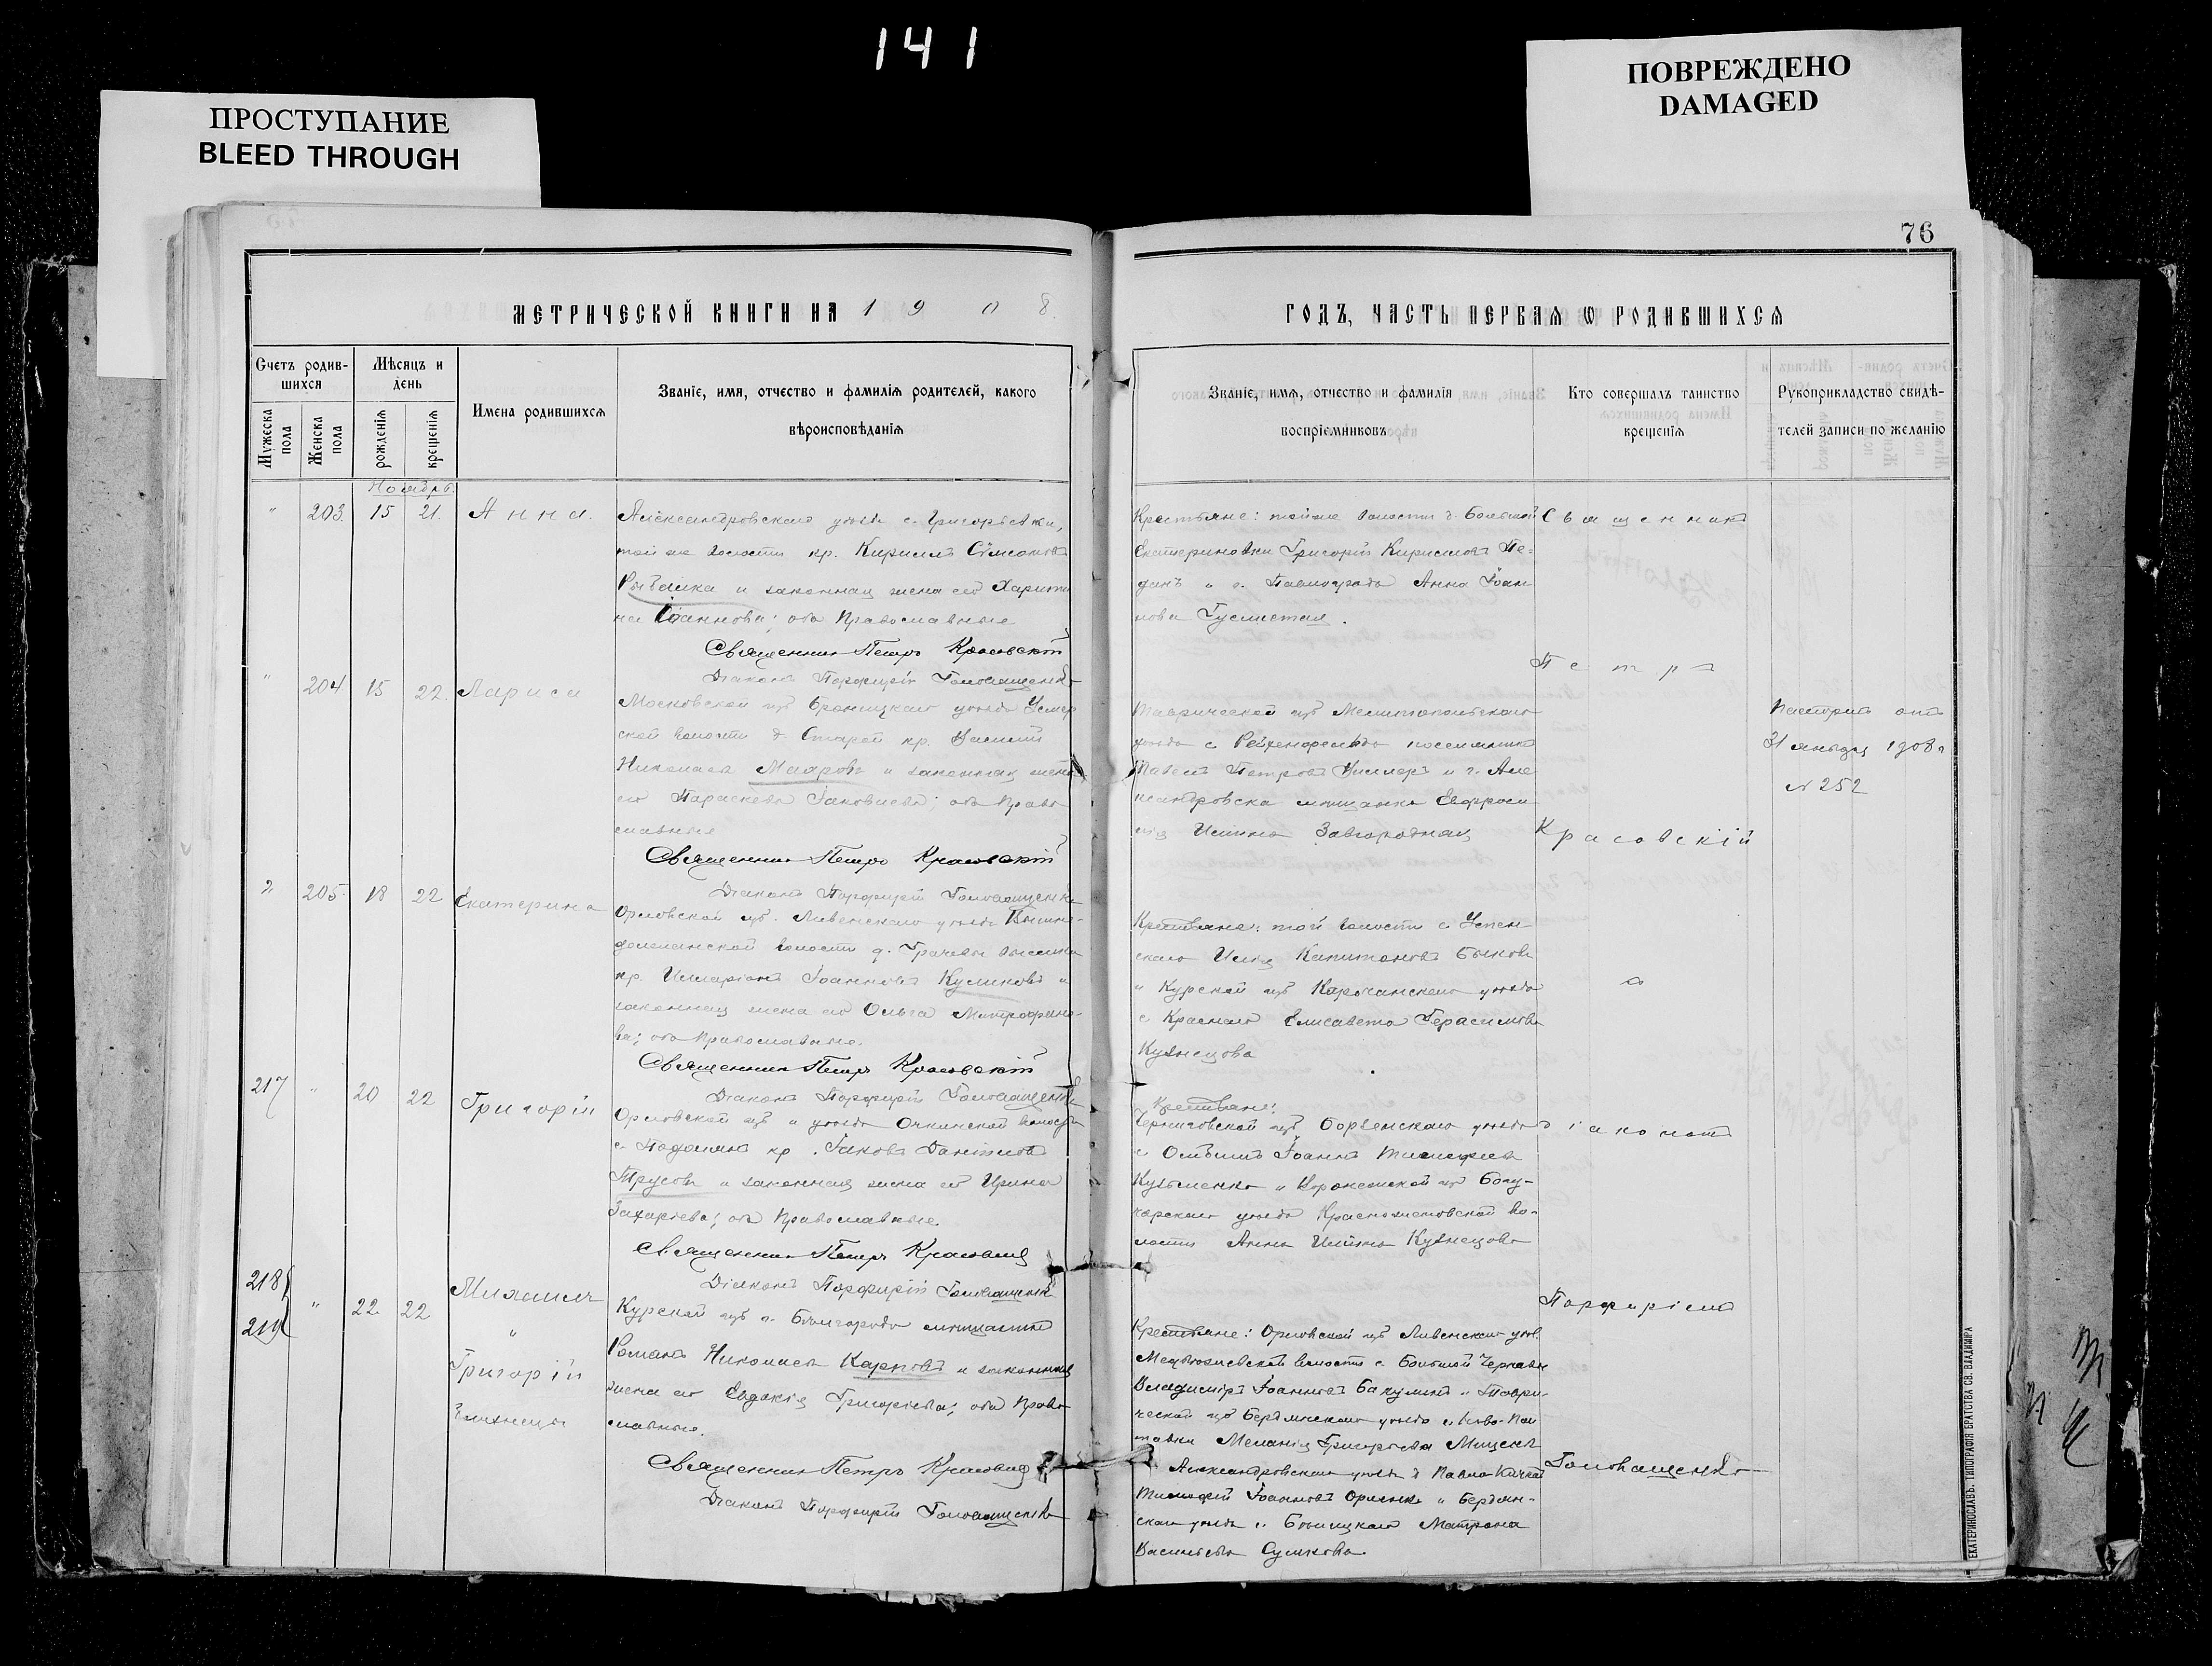 141
ПРОСТУПАНИЕ
BLEED THROUGH
ПОВРЕЖДЕНО
DAMAGED
76
МЕТРИЧЕСКОЙ КНИГИ НА 1908
ГОДЪ, ЧАСТЬ ПЕРВАЯ Ѡ РОДИВШИХСЯ
Счетъ родив-
шихся
Мужеска пола
Женска пола
Мѣсяцъ и
день
рожденія
крещенія
Имена родившихся
Званіе, имя, отчество и фамилія родителей, какого
вѣроисповѣданія
Званіе, имя, отчество и фамилія
воспріемниковъ
Кто совершалъ таинство
крещенія
Рукоприкладство свидѣ-
телей записи по желанію
Ноябрь.
" 203. 15 21. Анна.
Александровскаго уѣзда с. Григорьевки,
той же волости кр. Кириллъ Симеоновъ
и законная жена его Харити
на Іоаннова; оба Православные
Священникъ Петръ Красовскій
Діаконъ Порфирій Головащенко
Крестьяне: тойже волости д. Большой
Екатериновки Григорій Кирилловъ Пе-
данъ и г. Павлограда Анна Іоан
нова
" 204 15 22. Лариса
Московской губ Бронницкаго уѣзда
ской волости д. Старой кр. Василій
Николаевъ и законная жена
его Параскева Іаковлева; оба Право
славные
Священникъ Петръ Красовскій
Діаконъ Порфирій Головащенко
Таврической губ Мелитопольскаго
уѣзда с Рейхенфельда поселянинъ
Павелъ Петровъ и г. Але
ксандровска мѣщанка Евфроси
нія Ильина Завгородняя
Паспортъ отъ
31 января 1908 г
№ 252
" 205. 18 22 Екатерина
Орловской губ. Ливенскаго уѣзда Вышне-
должанской волости д. Грачевы выселки
кр. Илларіонъ Іоанновъ Куликовъ и
законная жена его Ольга Митрофано-
ва; оба Православные.
Священникъ Петръ Красовскій
Діаконъ Порфирій Головащенко
Крестьяне: той волости с Успен-
скаго Илія Капитоновъ Быковъ
и Курской губ Корочанскаго уѣзда
с Краснаго Елисавета Герасимова
Кузнецова
217 " 20 22 Григорій
Орловской губ и уѣзда волости
с кр. Іаковъ Даніиловъ
Трусовъ и законная жена его Ирина
Захаріева; оба Православные.
Священникъ Петръ Красовскій
Діаконъ Порфирій Головащенко
Крестьяне:
Черниговской губ Борзенскаго уѣзда
с Іоаннъ Тимофеевъ
Кузьменко и Воронежской губ Богу-
чарскаго уѣзда во-
лости Анна Ильина Кузнецова
218
219 " 22 22 Михаилъ
"
Григорій
близнецы
Курской губ г. Бѣлгорода мѣщанинъ
Романъ Николаевъ Карповъ и законная
жена его Евдокія Григорьева; оба Право
славные.
Священникъ Петръ Красовскій
Діаконъ Порфирій Головащенко
Крестьяне: Орловской губ Ливенскаго уѣз.
волости с. Большой Чернавы
Владиміръ Іоанновъ Бакулинъ и Таври-
ческой губ Бердянскаго уѣзда с. Ново-Пол
тавки Меланія Григорьева
Александровскаго уѣзда д Павло-Кичкас
Тимофей Іоанновъ и Бердян-
скаго уѣзда с. Матрона
Васильева Сумкова.
Священникъ
Петръ
Красовскій
съ
Діакономъ
Порфиріемъ
Головащенко
ЕКАТЕРИНОСЛАВЪ. ТИПОГРАФІЯ БРАТСТВА СВ. ВЛАДИМІРА